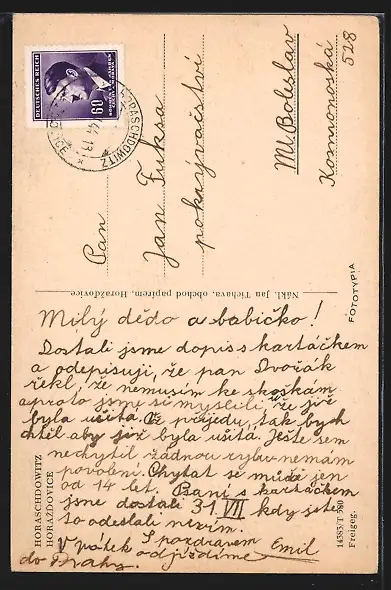 DEUTSCHES REICH
60
BÖHMEN UND MÄHREN
Pan
Jan Fuksa
pokrývačství
Ml. Boleslav
Kosmonoská
528
Nákl. Jan Tichava, obchod papírem, Horažďovice.
FOTOTYPIA
HORASCHDOWITZ
HORAŽĎOVICE
14385/T
Freigeg.
Milý dědo a babičko!
Dostali jsme dopis s kartáčkem
a odepisuji, že pan Dvořák
řekl, že nemusím ke skoškám
aproto jsme si mysleli, že již
byla ušitá. Až přijedu, tak bych
chtěl aby již byla ušitá. Ještě sem
nechytil žádnou rybu nemám
povolení. Chytat se může jen
od 14 let. Psaní s kartáčkem
jsme dostali 31. VII kdy jste
to odeslali nevím.
S pozdravem Emil
V pátek odjíždíme
do Prahy.